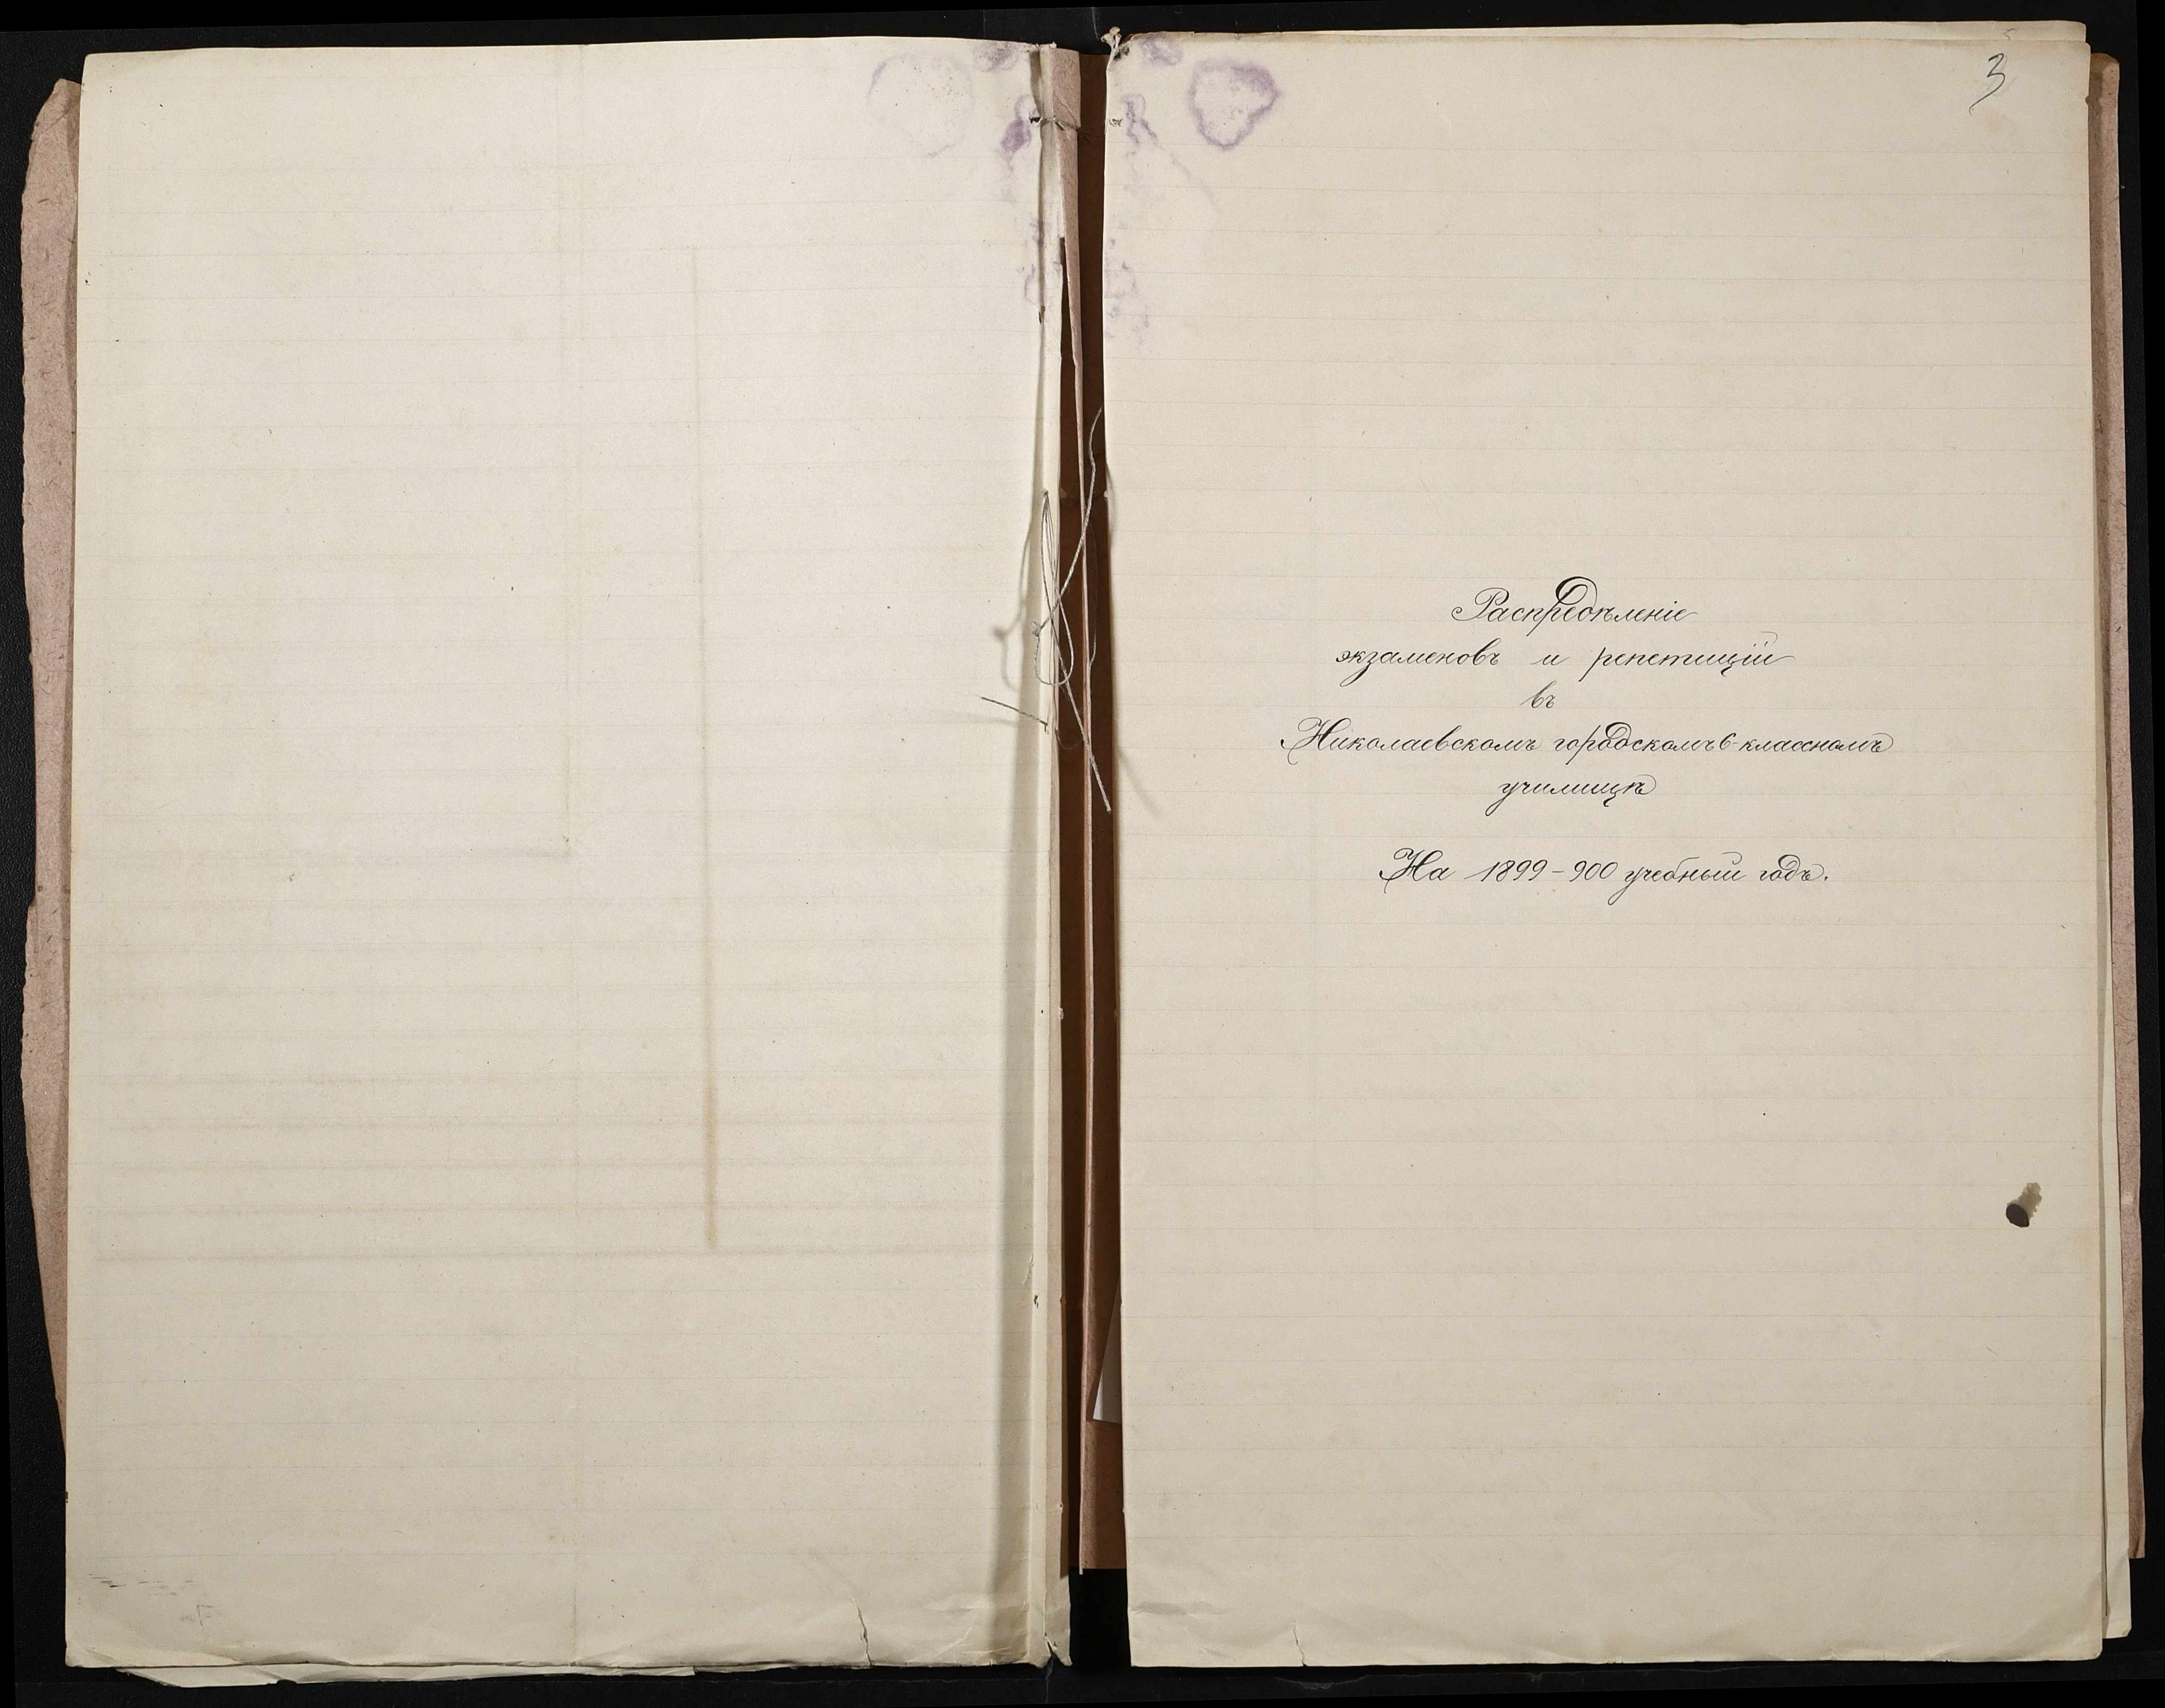 3
Распредѣленіе
экзаменовъ и репетицій
въ
Николаевскомъ городскомъ 6-классномъ
училищѣ
На 1899-900 учебный годъ.